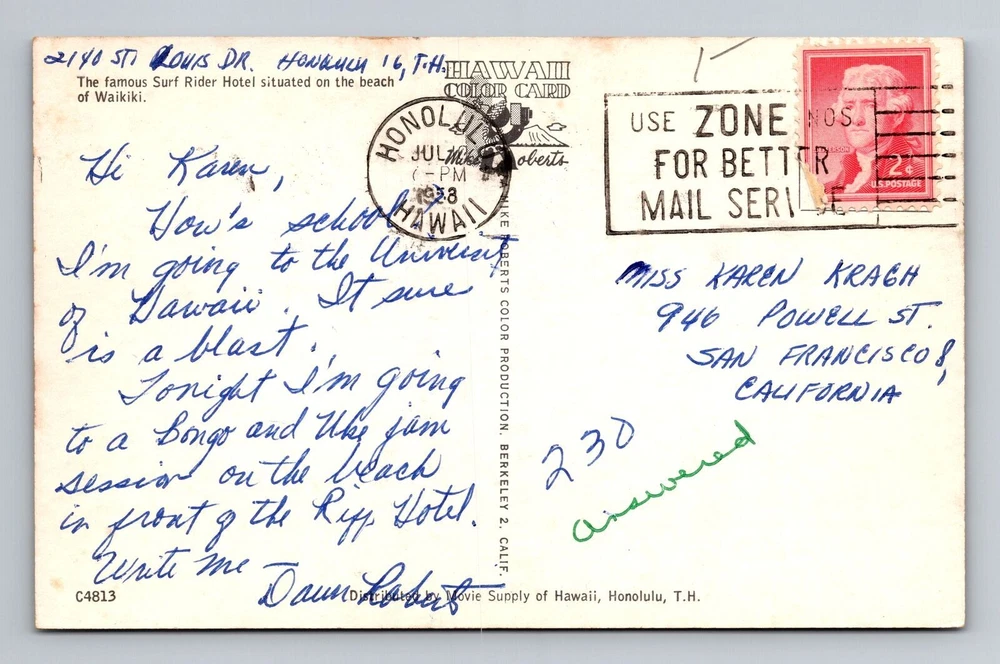 2140 ST. LOUIS DR. HONOLULU 16, T.H.
The famous Surf Rider Hotel situated on the beach
of Waikiki.
HAWAII
COLOR CARD
Mike Roberts
HONOLULU
JUL
-PM
1958
HAWAII
USE ZONE NOS.
FOR BETTER
MAIL SERVICE
2¢
U.S. POSTAGE
Hi Karen,
How's school
I'm going to the University
of Hawaii. It sure
is a blast.
Tonight I'm going
to a Bongo and Uke jam
session on the beach
in front of the Riff Hotel.
Write me
Dawn Robert
MIKE ROBERTS COLOR PRODUCTION, BERKELEY 2, CALIF.
MISS KAREN KRAGH
946 POWELL ST.
SAN FRANCISCO 8,
CALIFORNIA
230
answered
C4813
Distributed by Movie Supply of Hawaii, Honolulu, T.H.